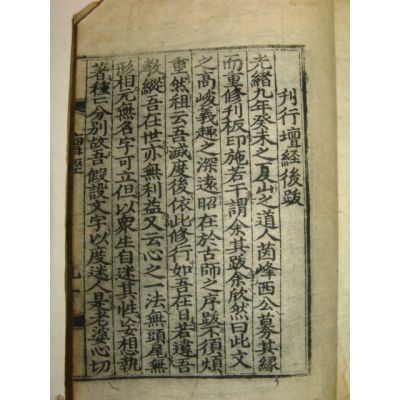 刊行壇経後跋
光緒九年癸未之夏山之道人茵峰西公募其縁
而重修刊板印施若干謂余其跋余欣然曰此文
之高峻義趣之深遠昭在於古師之序跋不須煩
重然祖云吾滅度後依此修行如吾在日若違吾
教縱吾在世亦無利益又云心之一法無頭尾無
形相元無名字可立但以衆生自迷其性妄想執
著種〻分別故吾假設文字以度迷人是老婆心切
壇經